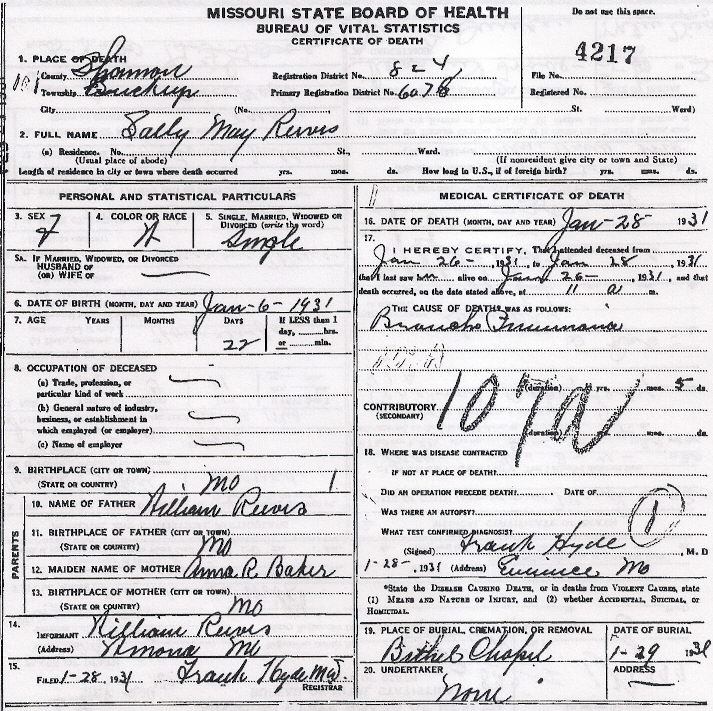 MISSOURI STATE BOARD OF HEALTH
BUREAU OF VITAL STATISTICS
CERTIFICATE OF DEATH
Do not use this space.
4217
1. PLACE OF DEATH
County Shannon Registration District No. 824 File No.
Township Primary Registration District No. 6078 Registered No.
City (No. St. Ward)
2. FULL NAME Sally May Reeves
(a) Residence. No. St., Ward.
(Usual place of abode) (If nonresident give city or town and State)
Length of residence in city or town where death occurred yrs. mos. ds. How long in U.S., if of foreign birth? yrs. mos. ds.
PERSONAL AND STATISTICAL PARTICULARS
3. SEX 4. COLOR OR RACE 5. SINGLE, MARRIED, WIDOWED OR
DIVORCED (write the word)
F W Single
5A. IF MARRIED, WIDOWED, OR DIVORCED
HUSBAND OF
(OR) WIFE OF
6. DATE OF BIRTH (MONTH, DAY AND YEAR) Jan-6-1931
7. AGE YEARS MONTHS DAYS IF LESS than 1
day, hrs.
22 or min.
8. OCCUPATION OF DECEASED
(a) Trade, profession, or
particular kind of work
(b) General nature of industry,
business, or establishment in
which employed (or employer)
(c) Name of employer
9. BIRTHPLACE (CITY OR TOWN)
(STATE OR COUNTRY) Mo 1
PARENTS
10. NAME OF FATHER William Reeves
11. BIRTHPLACE OF FATHER (CITY OR TOWN)
(STATE OR COUNTRY) Mo
12. MAIDEN NAME OF MOTHER Anna R. Baker
13. BIRTHPLACE OF MOTHER (CITY OR TOWN)
(STATE OR COUNTRY) Mo
14.
INFORMANT William Reeves
(Address) Mo
15.
FILED 1-28, 1931 Frank Hyde MD.
REGISTRAR
MEDICAL CERTIFICATE OF DEATH
16. DATE OF DEATH (MONTH, DAY AND YEAR) Jan-28- 1931
17.
I HEREBY CERTIFY, That I attended deceased from
Jan 26-, 1931, to Jan 28, 1931
that I last saw h alive on Jan 26-, 1931, and that
death occurred, on the date stated above, at 11 a m.
THE CAUSE OF DEATH* WAS AS FOLLOWS:
Broncho Pneumonia
107A
(duration) yrs. mos. 5 ds.
CONTRIBUTORY
(SECONDARY)
(duration) yrs. mos. ds.
18. WHERE WAS DISEASE CONTRACTED
IF NOT AT PLACE OF DEATH?
DID AN OPERATION PRECEDE DEATH? DATE OF
WAS THERE AN AUTOPSY?
1
WHAT TEST CONFIRMED DIAGNOSIS?
(Signed) Frank Hyde, M. D
1-28-, 1931 (Address) Eunice Mo
*State the DISEASE CAUSING DEATH, or in deaths from VIOLENT CAUSES, state
(1) MEANS AND NATURE OF INJURY, and (2) whether ACCIDENTAL, SUICIDAL, or
HOMICIDAL.
19. PLACE OF BURIAL, CREMATION, OR REMOVAL DATE OF BURIAL
Bethel Chapel 1-29 1931
20. UNDERTAKER ADDRESS
None